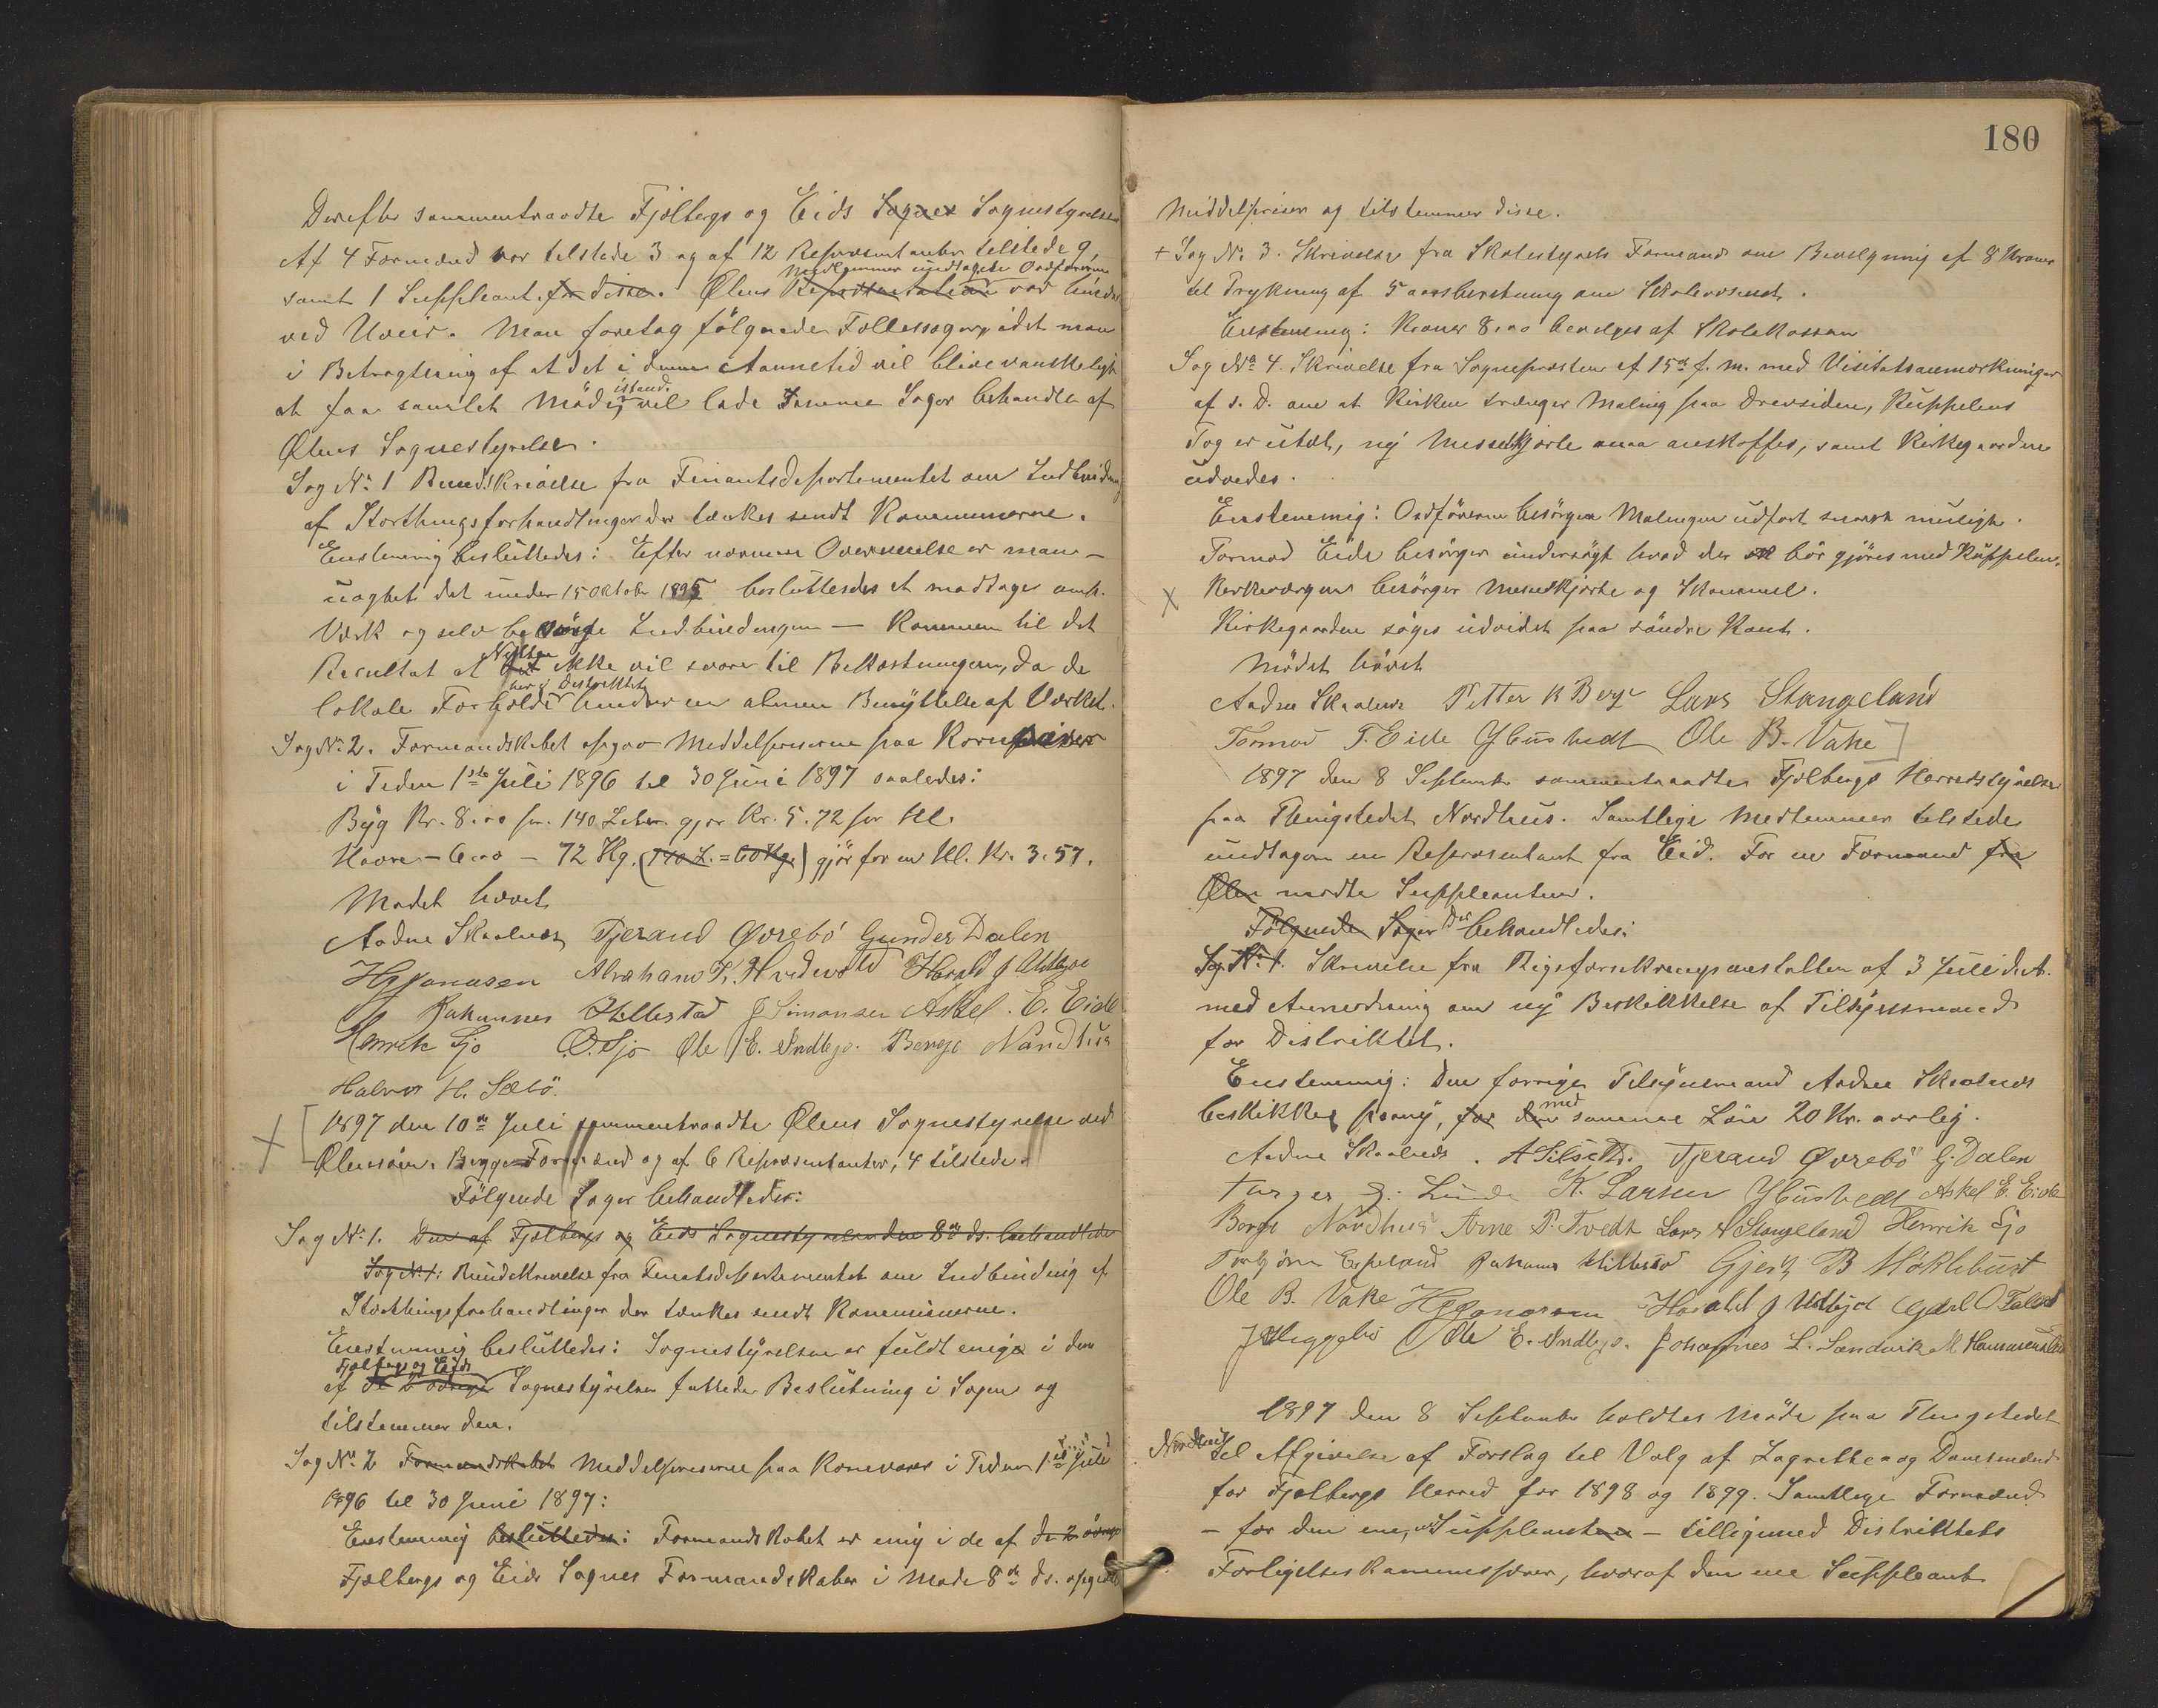 Derefter sammentraadte Fjelbergs og Eids Sognes Sognestyrelser
Af 4 Formænd var tilstede 3 og af 12 Repræsentanter tilstede 9,
Medlemmer undtagen Ordføreren
samt 1 Suppleant for disse. Ølens Repræsentation var hindret
ved Uveir. Man foretog følgende Fællessager, idet man
i Betragtning af at det i denne Aannetid vil blive vanskeligt
istand.
at faa samlet Møde, vil lade samme Sager behandle af
Ølens Sognestyrelse.
Sag No 1 Rundskrivelse fra Finantsdepartementet om Indbinding
af Storthingsforhandlinger der tænkes sendt Kommunerne.
Enstemmig besluttedes: Efter nærmere Overveielse er man –
uagtet det under 15 Oktober 1895 besluttedes at modtage omh.
Værk og selv besørge Indbindingen — kommen til det
Nytten
Resultat at det ikke vil svare til Bekostningen, da de
her i Distriktet
lokale Forholde hindrer en almen Benyttelse af Værket.
Sag No 2. Formandskabet opgav Middelpriserne paa Kornvarer
i Tiden 1ste Juli 1896 til 30 Juni 1897 saaledes:
Byg Kr. 8.00 pr. 140 Liter gjør Kr. 5.72 per Hl.
Havre – 6.00 – 72 Kg. (140 L. = 60 Kg.) gjør for en Hl. Kr. 3.57.
Mødet hævet
Aadne Skaalnes Tjerand Øvrebö Gunder Dalen
HJJonassen Abraham T. Hvidevold Harald J Utbjoe
Johannes Hillestad J Simonsen Askel. E. Eide
Henrik Sjo O. Sjo Ole E. Indbjo. Børge Nordhus
Halvor H. Sæbö.
1897 den 10de Juli sammentraadte Ølens Sognestyrelse ved
Ølensøen. Begge Formænd og af 6 Repræsentanter, 4 tilstede.
Følgende Sager behandledes:
Sag No 1. Den af Fjelbergs og Eids Sognestyrelser den 8de ds. behandlede
Sag No 1: Rundskrivelse fra Finantsdepartementet om Indbinding af
Storthingsforhandlinger der tænkes sendt Kommunerne.
Enstemmig besluttedes: Sognestyrelsen er fuldt enige i den
Fjelbergs og Eids
af de 2 øvrige Sognestyrelser fattede Beslutning i Sagen og
tilstemmer den.
Sag No 2 Formandskabet Middelpriserne paa Kornvarer i Tiden 1ste Juli
1896 til 30 Juni 1897:
Enstemmig besluttedes: Formandskabet er enig i de af de 2 øvrige
Fjelbergs og Eids Sognes Formandskaber i Møde 8de ds. opgivne
180
Middelpriser og tilstemmer disse.
+ Sag No 3. Skrivelse fra Skolestyrets Formand om Bevilgning af 8 Kroner
til Trykning af 5 aarsberetning om Skolevæsenet.
Enstemmig: Kroner 8.00 bevilges af Skolekassen
Sag No 4. Skrivelse fra Sognepresten af 15de f. m. med Visitatsanmærkninger
af s. D. om at Kirken trænger Maling paa Drevsiden, Kuppelens
Tag er utæt, ny Messeskjorte maa anskaffes, samt Kirkegaarden
udvides.
Enstemmig: Ordføreren besørger Malingen udført snarest muligt.
Tormod Eide besørger undersøgt hvad der bør gjøres med Kuppelen.
Kirkeværgen besørger Messeskjorte og Skammel.
Kirkegaarden søges udvidet paa søndre Kant.
Mødet hævet
Aadne Skaalnes Petter K Berge Lars Stangeland
Tormod T. Eide YHustvedt Ole B. Vake
1897 den 8 September sammentraadte Fjelbergs Herredsstyrelse
paa Thingstedet Nordhus. Samtlige Medlemmer tilstede
undtagen en Repræsentant fra Eid. For en Formand fra
Ølen mødte Suppleanten.
Følgende Sager Der behandledes:
Sag No 1. Skrivelse fra Rigsforsikringsanstalten af 3 Juli d.A.
med Anmodning om ny Beskikkelse af Tilsynsmand
for Distriktet.
Enstemmig: Den forrige Tilsynsmand Aadne Skaalnes
med
beskikkes paany, for den samme Løn 20 Kr. aarlig.
Aadne Skaalnes. Tjerand Øvrebö G. Dalen
K. Larsen YHustvedt Askel E. Eide
Børge Nordhus Arne P. Tvedt Lars Stangeland Henrik Sjo
Torbjørn Espeland Johannes Hillestad Gjert B Möklebust
Ole B. Vake HJJonassen Harald J Utbjoe
Ole E. Indbjo. Johannes L. Sandvik M. Hammersland
1897 den 8 September holdtes Møde paa Thingstedet
Nordhus
til Afgivelse af Forslag til Valg af Lagrettes og Domsmænd
for Fjelbergs Herred for 1898 og 1899. Samtlige Formænd
– for den ene, Suppleanten – tilligemed Distriktets
Forligelseskommissærer, hvoraf den ene Suppleant